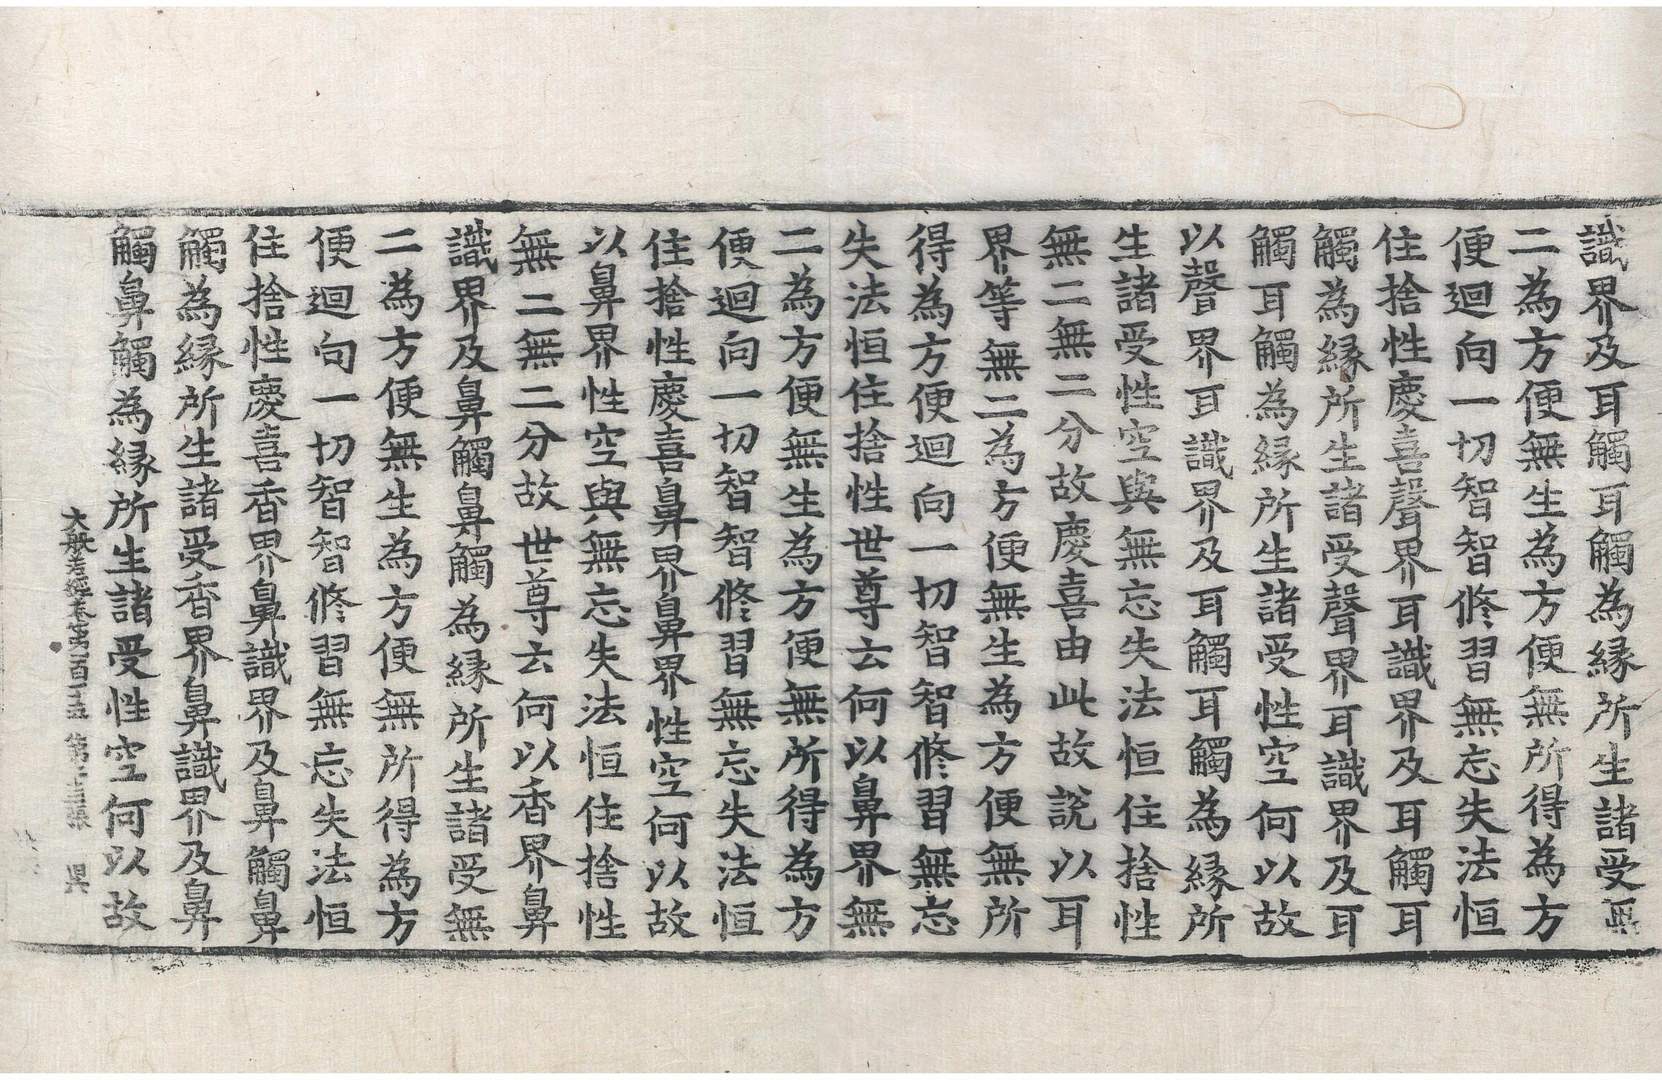 識界及耳觸耳觸為縁所生諸受無
二為方便無生為方便無所得為方
便迴向一切智智修習無忘失法恒
住捨性慶喜聲界耳識界及耳觸耳
觸為縁所生諸受聲界耳識界及耳
觸耳觸為縁所生諸受性空何以故
以聲界耳識界及耳觸耳觸為縁所
生諸受性空與無忘失法恒住捨性
無二無二分故慶喜由此故說以耳
界等無二為方便無生為方便無所
得為方便迴向一切智智修習無忘
失法恒住捨性世尊云何以鼻界無
二為方便無生為方便無所得為方
便迴向一切智智修習無忘失法恒
住捨性慶喜鼻界鼻界性空何以故
以鼻界性空與無忘失法恒住捨性
無二無二分故世尊云何以香界鼻
識界及鼻觸鼻觸為縁所生諸受無
二為方便無生為方便無所得為方
便迴向一切智智修習無忘失法恒
住捨性慶喜香界鼻識界及鼻觸鼻
觸為縁所生諸受香界鼻識界及鼻
觸鼻觸為縁所生諸受性空何以故
大般若經卷第一百一十五 第十三張 昃